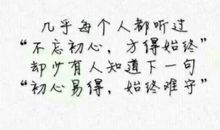 几乎每个人都听过
“不忘初心，方得始终”
却少有人知道下一句
“初心易得，始终难守”